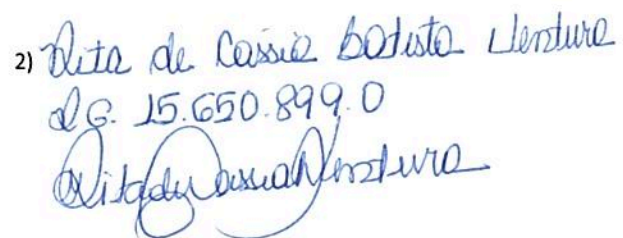 2) Rita de Cassia Batista Ventura
RG. 15.650.899.0
Rita de Cassia Ventura